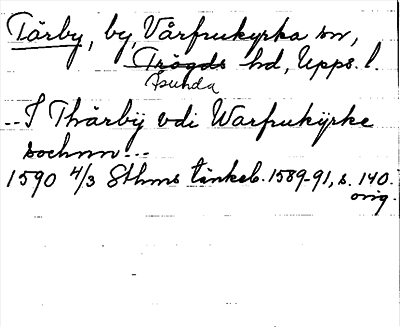 Tärby, by, Vårfrukyrka sn,
Trögds hd, Upps. l.
Åsunda
.. I Thärbÿ vdi Warfrukÿrke
sochnn...
1590 4/3 Sthms tänkeb. 1589-91, s. 140.
orig.